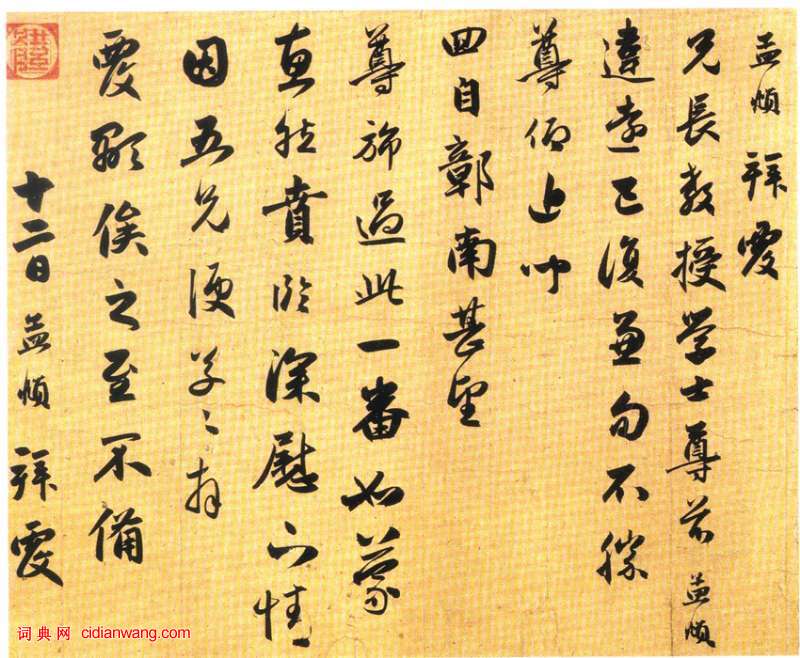 孟頫 拜覆
兄長教授学士尊前 孟頫
違遠已復兼旬不勝
尊仰
四自彰南甚望
尊旆過此一番如蒙
惠然賁臨深慰下情
因五兄便草々拜
覆顒俟之至不備
十二日孟頫 拜覆
词典网 cidianwang.com